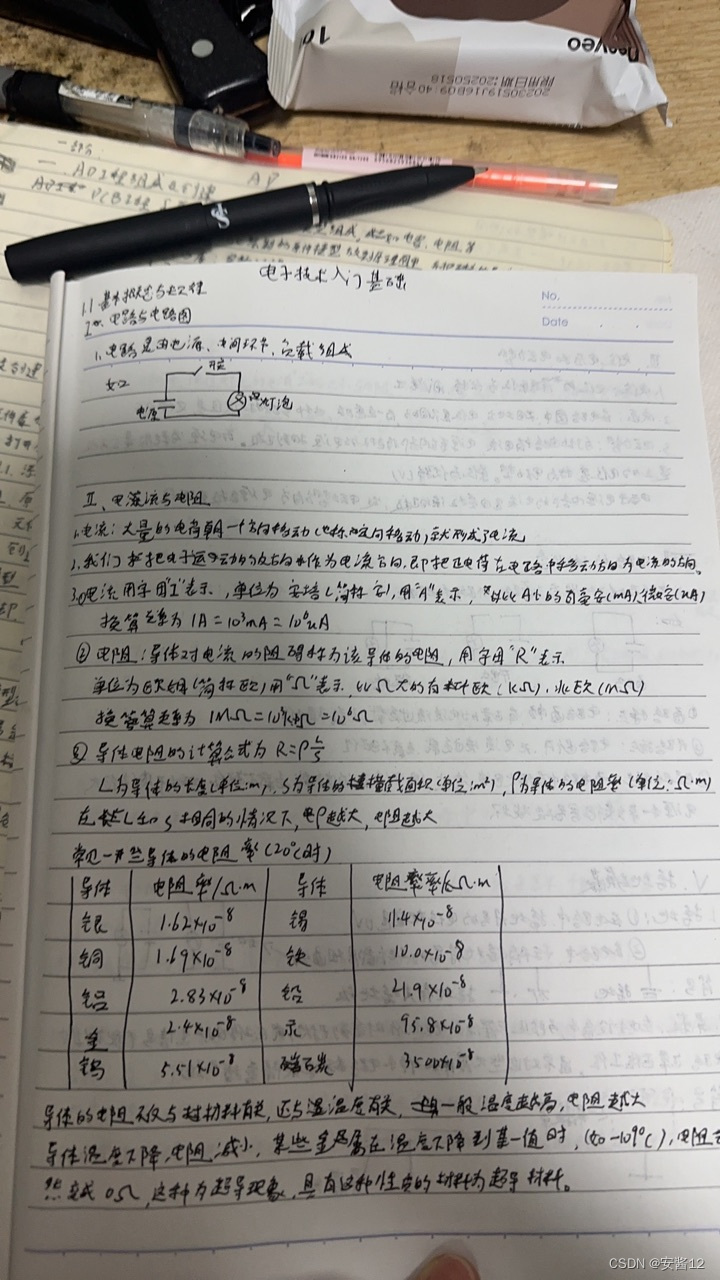 Deoyeo
10
20230519J16B09:40合格
限用日期:20250518
AP
电子技术入门基础
No.
Date
1.1 基本概念与
I. 电路与电路图
1. 电路是由电源、中间环节、负载组成
如: 开关
电源
灯泡
II、电流与电阻
1.电流:大量的电荷朝一个方向移动(也称定向移动),就形成了电流
2.我们把电子运动的反方向作为电流方向,即把正电荷在电路中移动方向为电流的方向。
3.电流用字母"I"表示,单位为安培(简称安),用"A"表示,比A小的有毫安(mA),微安(uA)
换算关系为 1A=10³mA=10⁶uA
② 电阻:导体对电流的阻碍称为该导体的电阻,用字母"R"表示
单位为欧姆(简称欧)用"Ω"表示,比Ω大的有千欧(kΩ),兆欧(MΩ)
换算关系为 1MΩ=10³kΩ=10⁶Ω
③ 导体电阻的计算公式为 R=ρL/S
L为导体的长度(单位:m),S为导体的横截面积(单位:m²),ρ为导体的电阻率(单位:Ω·m)
在L和S相同的情况下,ρ越大,电阻越大
常见一些导体的电阻率(20℃时)
导体 电阻率/Ω·m 导体 电阻率/Ω·m
银 1.62×10⁻⁸ 锡 11.4×10⁻⁸
铜 1.69×10⁻⁸ 铁 10.0×10⁻⁸
铝 2.83×10⁻⁸ 铅 21.9×10⁻⁸
金 2.4×10⁻⁸ 汞 95.8×10⁻⁸
钨 5.51×10⁻⁸ 碳 3500×10⁻⁸
导体的电阻不仅与材料有关,还与温度有关,一般温度越高,电阻越大
导体温度下降,电阻减小,某些金属在温度下降到某一值时,(如-109℃),电阻
然变成0Ω,这种为超导现象,具有这种性质的材料为超导材料。
CSDN @安酱12